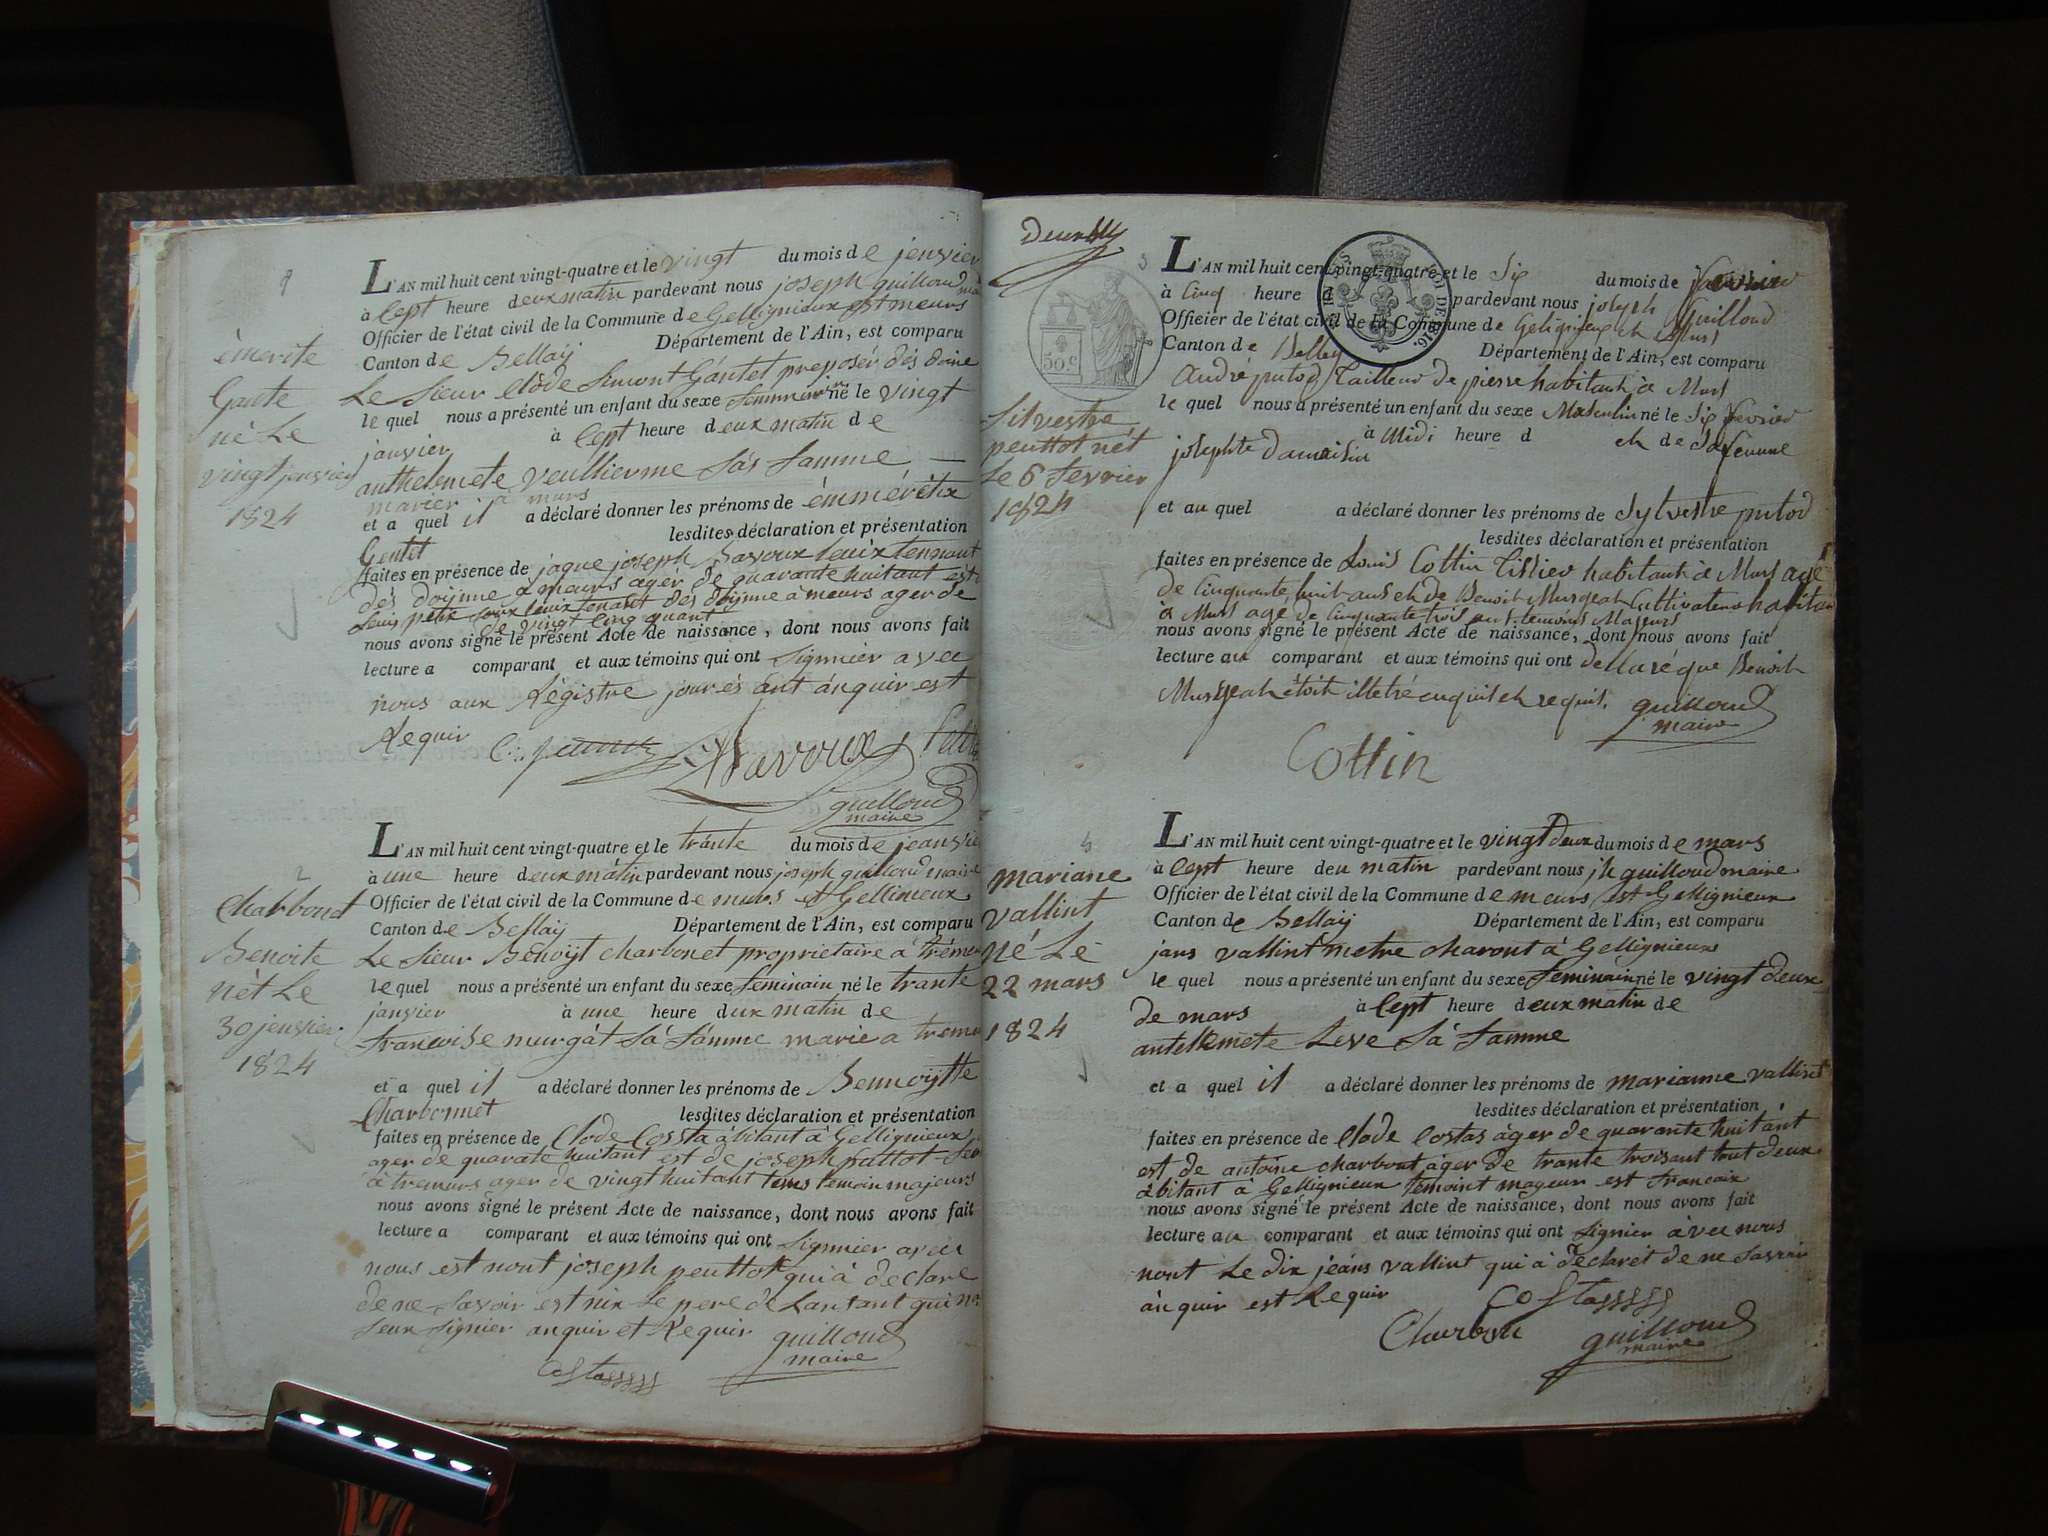 émerite
Gante
né Le
vingt janvier
1824
L'AN mil huit cent vingt-quatre et le vingt du mois de jenvier
à Cept heure deux matin pardevant nous joseph guilloud
Officier de l'état civil de la Commune de Gellignieux est meurs
Canton de Bellaÿ Département de l'Ain, est comparu
Le Sieur Clode Simont Gantet preposér dés doine
le quel nous a présenté un enfant du sexe né le vingt
janvier à Cept heure deux matin de
anthelemete veullierme Sás famme
marier a murs
et a quel il a déclaré donner les prénoms de
lesdites déclaration et présentation
faites en présence de jaque joseph Bavoux
dés doijnne a meurs agér de quarante huitant est
dés doijnne à meurs ager de
de vingt Cinq
nous avons signé le présent Acte de naissance, dont nous avons fait
lecture a comparant et aux témoins qui ont Signnier avec
nous aux Régistre jour és ant ánquir est
Requir
Bavoux
guilloud
maire
2
Charbont
Benoite
nét Le
30 jenvier
1824
L'AN mil huit cent vingt-quatre et le tránte du mois de jeanvier
à une heure deux mátin pardevant nous joseph guilloud maire
Officier de l'état civil de la Commune de murs et Gellinieux
Canton de Bellaÿ Département de l'Ain, est comparu
Le Sieur Benoÿt charbonet proprietaire a
le quel nous a présenté un enfant du sexe feminain né le trante
janvier à une heure dux matin de
francoise murgát Sá fámme marie a
et a quel il a déclaré donner les prénoms de Bennoÿtte
Charbonnet lesdites déclaration et présentation
faites en présence de Clode Costa ábitant á Gellignieux
ager de quarate huitant est de joseph puttot
á tremurs ager de vingt huitant temoin majeurs
nous avons signé le présent Acte de naissance, dont nous avons fait
lecture a comparant et aux témoins qui ont Signnier avec
nous est nont joseph peuttot qui á declare
de ne Savoir est nix Le pere de Lansant qui
Seux Signier anquir et Requir
guilloud
maire
Costasssss
3
50 c.
Silvestre
peuttot nét
Le 6 fevrier
1824
L'AN mil huit cent vingt-quatre et le Six du mois de
à Cinq heure d pardevant nous joseph Guilloud
Officier de l'état civil de la Commune de Gelignieux et Murs
Canton de Belley Département de l'Ain, est comparu
André putod Tailleur de pierre habitant à Murs
le quel nous a présenté un enfant du sexe Masculin né le Six fevrier
à Midi heure d et de Sa femme
josephte damaisin
et au quel a déclaré donner les prénoms de Sylvestre putod
lesdites déclaration et présentation
faites en présence de Louis Cottin Tissier habitant à Murs agé
de Cinquante huit ans et de Benoit Murgeat Cultivateur habitant
à Murs age de Cinquante trois ans temoins Majeurs
nous avons signé le présent Acte de naissance, dont nous avons fait
lecture au comparant et aux témoins qui ont declaré que Benoit
Murgeat étoit illetré enquis et requis.
guilloud
maire
Cottin
mariane
vallint
né Le
22 mars
1824
L'AN mil huit cent vingt-quatre et le vingt deux du mois de mars
à Cept heure deu matin pardevant nous jh guilloud maire
Officier de l'état civil de la Commune de meurs est Gellignieux
Canton de Bellaÿ Département de l'Ain, est comparu
jans vallint metre charont á Gellignieux
le quel nous a présenté un enfant du sexe feminain né le vingt deux
de mars à Cept heure deux matin de
antellemete Leve Sá famme
et a quel il a déclaré donner les prénoms de marianne vallint
lesdites déclaration et présentation
faites en présence de Clode Costas áger de quarante huitant
est de antoine charbont áger de trante troisant tout deux
ábitant á Gellignieux temoint mayeur est francaix
nous avons signé le présent Acte de naissance, dont nous avons fait
lecture au comparant et aux témoins qui ont Signier ávec nous
nont Le dix jeáns vallint qui á déclarét de ne Savoir
ánquir est Requir
Costasssss
guilloud
maire